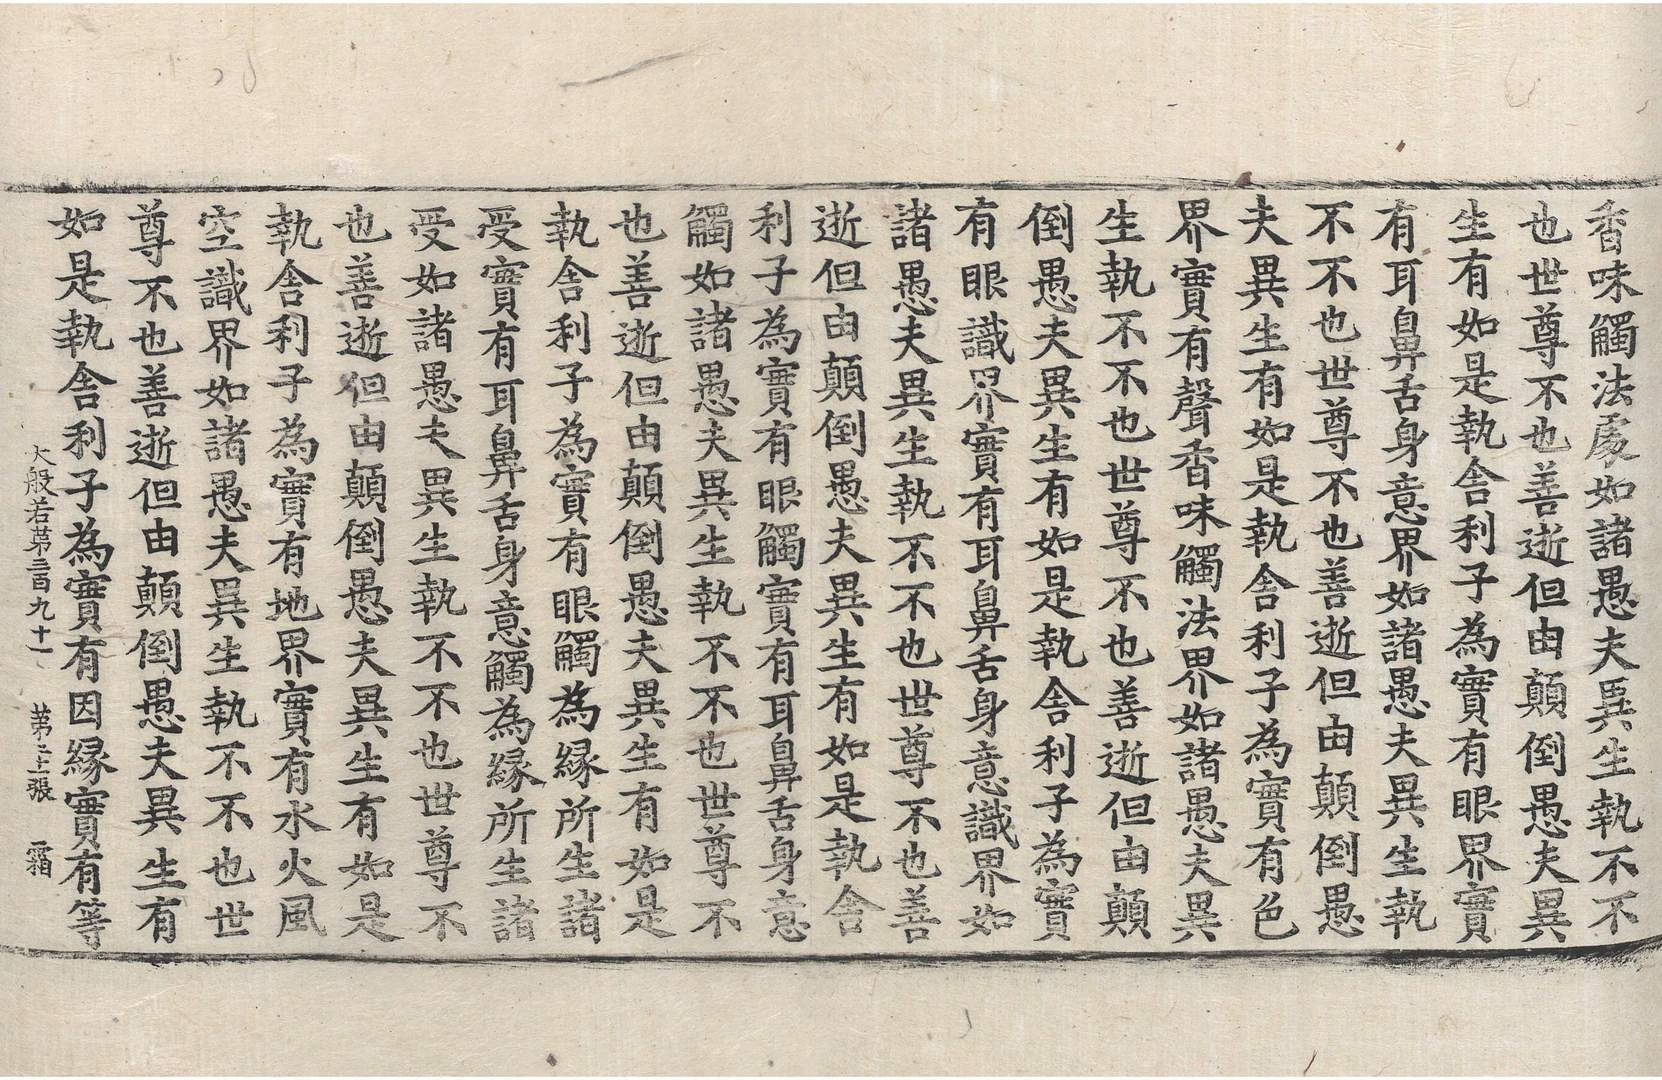 香味觸法處如諸愚夫異生執不不
也世尊不也善逝但由顛倒愚夫異
生有如是執舍利子為實有眼界實
有耳鼻舌身意界如諸愚夫異生執
不不也世尊不也善逝但由顛倒愚
夫異生有如是執舍利子為實有色
界實有聲香味觸法界如諸愚夫異
生執不不也世尊不也善逝但由顛
倒愚夫異生有如是執舍利子為實
有眼識界實有耳鼻舌身意識界如
諸愚夫異生執不不也世尊不也善
逝但由顛倒愚夫異生有如是執舍
利子為實有眼觸實有耳鼻舌身意
觸如諸愚夫異生執不不也世尊不
也善逝但由顛倒愚夫異生有如是
執舍利子為實有眼觸為緣所生諸
受實有耳鼻舌身意觸為緣所生諸
受如諸愚夫異生執不不也世尊不
也善逝但由顛倒愚夫異生有如是
執舍利子為實有地界實有水火風
空識界如諸愚夫異生執不不也世
尊不也善逝但由顛倒愚夫異生有
如是執舍利子為實有因緣實有等
大般若第三百九十一 第張 霜